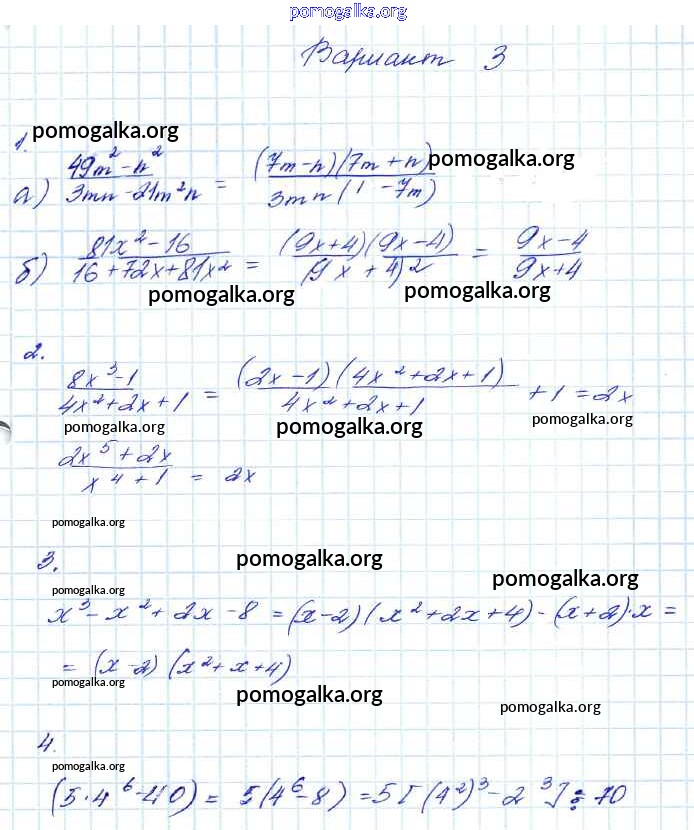 pomogalka.org
Вариант 3
1.
pomogalka.org
а) (49m² - n²)/(3mn - 21m²n) = ((7m - n)(7m + n))/(3mn(1 - 7m)) pomogalka.org
б) (81x² - 16)/(16 + 72x + 81x²) = ((9x + 4)(9x - 4))/((9x + 4)²) = (9x - 4)/(9x + 4)
pomogalka.org pomogalka.org
2.
(8x³ - 1)/(4x² + 2x + 1) = ((2x - 1)(4x² + 2x + 1))/(4x² + 2x + 1) + 1 = 2x
pomogalka.org pomogalka.org pomogalka.org
(2x⁵ + 2x)/(x⁴ + 1) = 2x
pomogalka.org
3. pomogalka.org
pomogalka.org pomogalka.org
x³ - x² + 2x - 8 = (x - 2)(x² + 2x + 4) - (x + 2)·x =
= (x - 2)(x² + x + 4)
pomogalka.org pomogalka.org pomogalka.org
4.
pomogalka.org
(5·4⁶ - 40) = 5(4⁶ - 8) = 5[(4²)³ - 2³] ⋮ 70